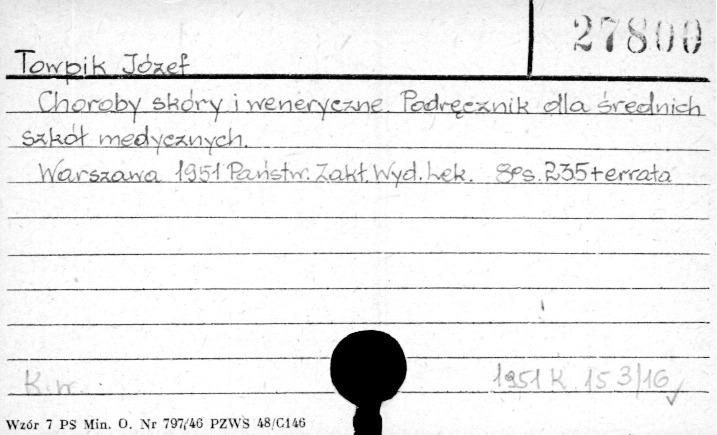 27800
Towpik Józef
Choroby skóry i weneryczne. Podręcznik dla średnich
szkół medycznych.
Warszawa 1951 Państw. Zakł. Wyd. Lek. 8°s. 235+errata
K.w. 1951 K 153/16 ✓
Wzór 7 PS Min. O. Nr 797/46 PZWS 48/C146